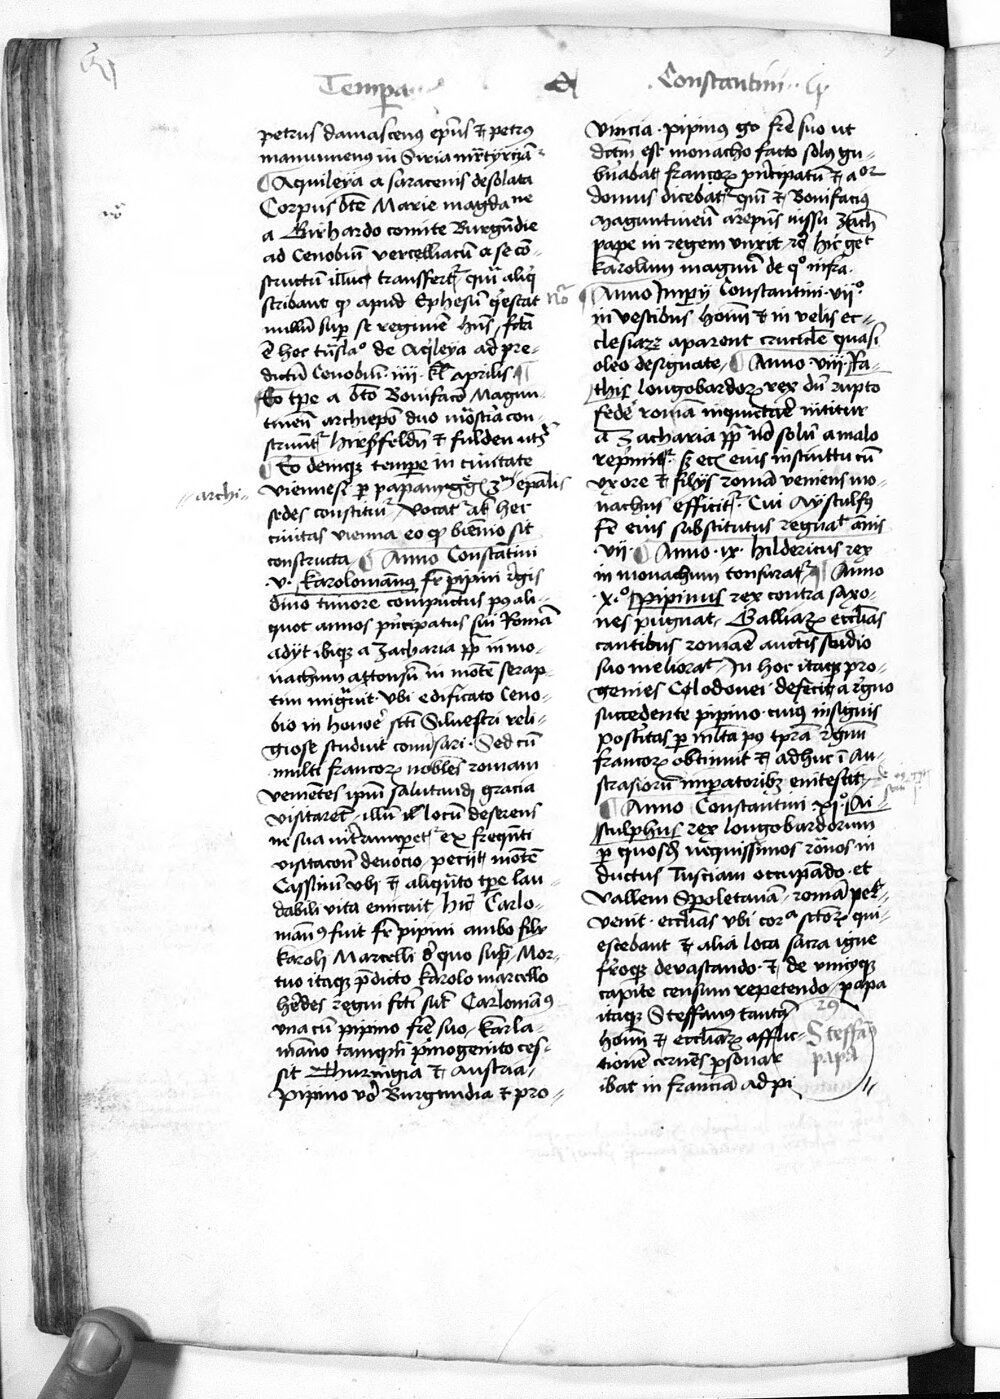 Tempa
Constantini
petrus damascenus epus et petrus
manumenus in Siria mrtyrizat
Aquileya a saracenis desolata
Corpus bte Marie magdalene
a Girhardo comite Burgundie
ad Cenobium vercelliacum a se con-
structum illuc transfertur quum aliqui
scribant quod apud Ephesum quiescat
nullum super se regimen hns, facta
e hec tnslao de Aqileya ad pre-
dictum Cenobium iiii kl aprilis
Eo tpe a bto Bonifacio Magun-
tinen archiepo duo monstria con-
struuntur hirsfelden et fulden
Eo denique tempore in ciuitate
viennen p papam epalis
archi
sedes constituitur vocatur ab hec
ciuitas vienna eo quod biennio sit
constructa Anno Constantini
v. karolomannus fr pipini regis
diuino timore compunctus post ali-
quot annos principatus sui Romam
adyt ibique a Zacharia pp in mo-
nachum attonsus in montem serap-
tim migrauit vbi edificato Ceno-
bio in honore scti Siluestri reli-
giose studuit conuersari. Sed cum
multi francorum nobiles romam
venientes ipsum salutandi gracia
visitarent, illum locum deserens
ne sua interrumperetur ex frequenti
visitacione deuocio, peciit montem
Cassinum vbi et aliquanto tpe lau-
dabili vita enituit, hic Carlo-
mannus fuit fr pipini ambo filii
karoli Marcelli de quo supra, Mor-
tuo itaque predicto karolo marcello
heredes regni fcti sunt Carlomannus
vna cum pipino fre suo, karla-
manno tamquam primogenito ces-
sit Thuringia et austria,
Pipino vero Burgundia et pro-
vincia. pipinus ergo fre suo ut
dictum est monacho facto solus gu-
bernabat francorum principatum et maior
domus dicebatur quem et Bonifacius
Maguntinen arepus iussu Zach
pape in regem vnxit hic genuit
karolum magnum de quo infra.
Anno Imperij Constantini vij
in vestibus hominum et in velis ec-
clesiarum aparent crucicule quasi
oleo designate, Anno viij Ra-
this longobardorum rex dum rupto
federe romam inquietare nititur
a Zacharia pp non solum a malo
reprimitur sed eciam eius instinctu cum
vxore et filijs romam veniens mo-
nachus efficitur. Cui Aystulfus
fr eius substitutus regnat annis
vij Anno ix hildericus rex
in monachum tonsuratur Anno
x pipinus rex contra saxo-
nes pugnat. Galliarum ecclesias
cantibus romane auctis studio
suo meliorat, In hoc itaque pro-
genies Clodouei defecit a regno
succedente pipino cuius insignis
posteritas per multa post tempora regnum
francorum obtinuit et adhuc in Au-
strasiorum imperatoribus enitescit
Anno Constantini xi Ai-
stulphus rex longobardorum
per quosdam nequissimos romanos in
ductus Tusciam occupando et
vallem Spoletanam, romam per-
venit. ecclesias vbi corpora sctorum qui-
escebant et alia loca sacra igne
ferroque deuastando et de vnicoque
capite censum repetendo, papa
itaque Steffanus tantam
hominum et ecclesiarum afflic-
tionem cernens personaliter
ibat in franciam ad pi
29
Steffanus
papa